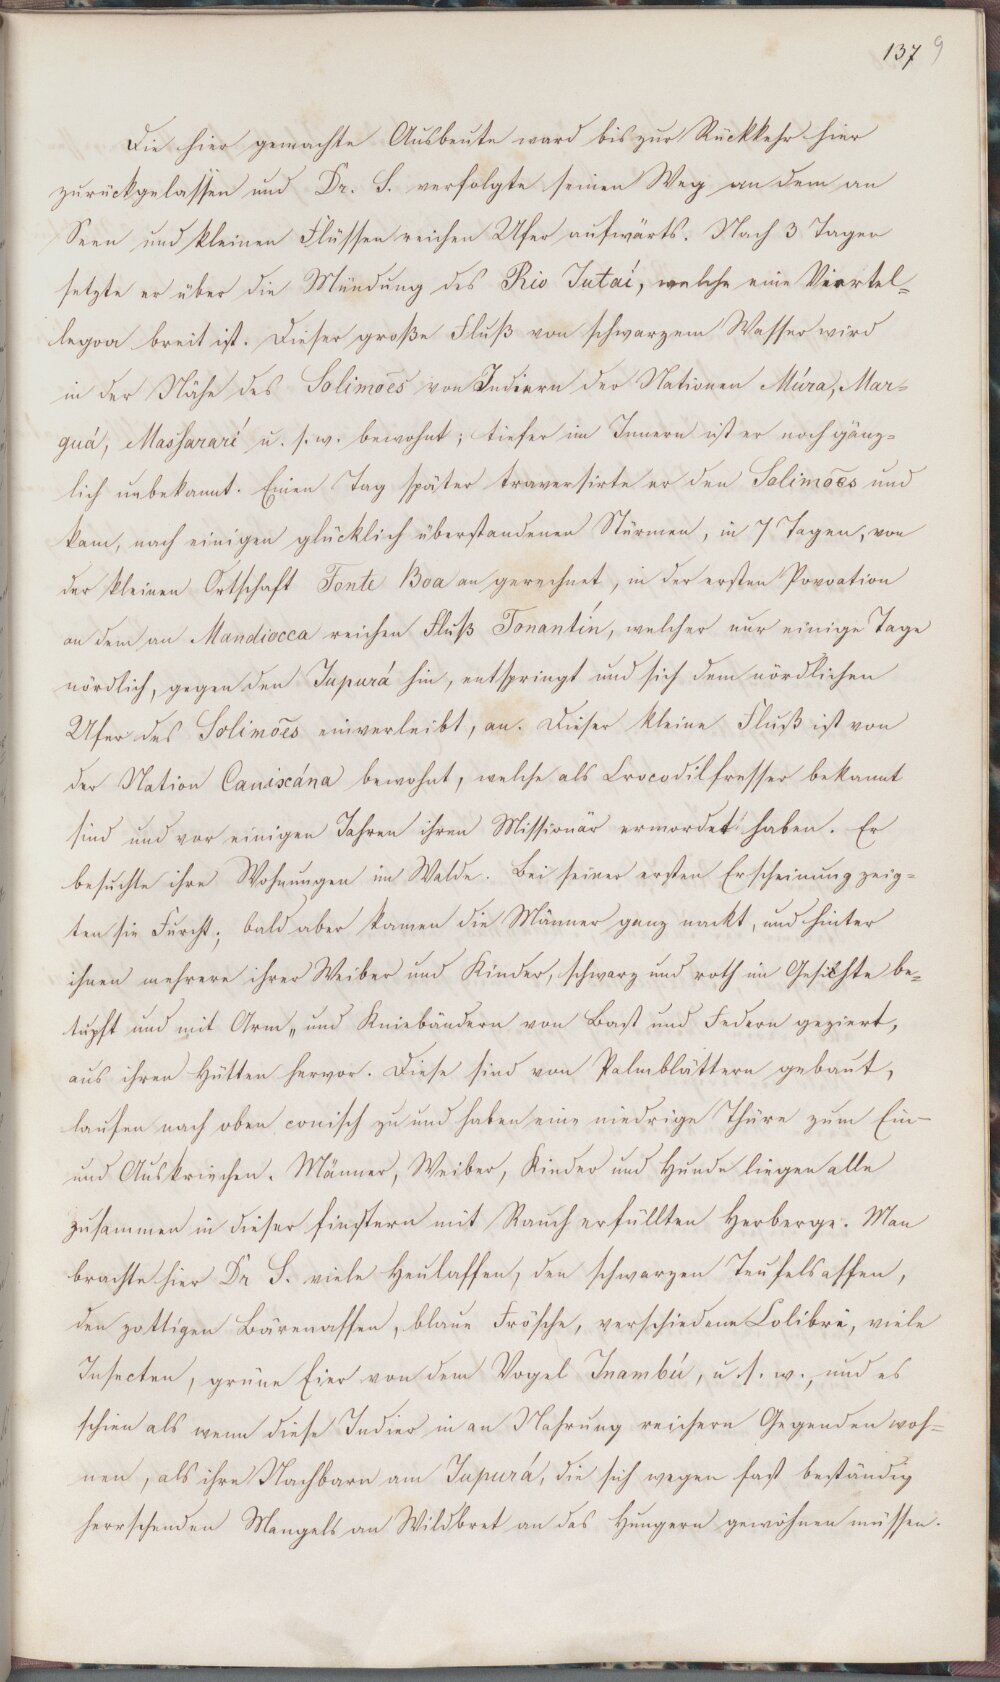 137 9
Die hier gemachte Ausbeute ward bis zur Rückkehr hier
zurückgelassen und Dr. S. verfolgte seinen Weg an dem an
Seen und kleinen Flüssen reichen Ufer aufwärts. Nach 3 Tagen
setzte er über die Mündung des Rio Jutaí, welche eine Viertel=
legoa breit ist. Dieser große Fluß von schwarzem Wasser wird
in der Nähe des Solimoẽs von Indiern der Nationen Múra, Mar=
quá, Massararí u. s. w. bewohnt; tiefer im Innern ist er noch gänz=
lich unbekannt. Einen Tag später traversirte er den Solimoẽs und
kam, nach einigen glücklich überstandenen Stürmen, in 7 Tagen, von
der kleinen Ortschaft Fonte Boa an gerechnet, in der ersten Povoation
an dem an Mandiocca reichen Fluß Tonantín, welcher nur einige Tage
nördlich, gegen den Jupurá hin, entspringt und sich dem nördlichen
Ufer des Solimoẽs einverleibt, an. Dieser kleine Fluß ist von
der Nation Cauixána bewohnt, welche als Crocodilfresser bekannt
sind und vor einigen Jahren ihren Missionär ermordet haben. Er
besuchte ihre Wohnungen im Walde. Bei seiner ersten Erscheinung zeig=
ten sie Furcht; bald aber kamen die Männer ganz nackt, und hinter
ihnen mehrere ihrer Weiber und Kinder, schwarz und roth im Gesichte be=
tupft und mit Arm„ und Kniebändern von Bast und Federn geziert,
aus ihren Hütten hervor. Diese sind von Palmblättern gebaut,
laufen nach oben conisch zu und haben eine niedrige Thüre zum Ein-
und Auskriechen. Männer, Weiber, Kinder und Hunde liegen alle
zusammen in dieser finstern mit Rauch erfüllten Herberge. Man
brachte hier Dr S. viele Heulaffen, den schwarzen Teufelsaffen,
den zottigen Bärenaffen, blaue Frösche, verschiedene Colibri, viele
Insecten, grüne Eier von dem Vogel Inambú, u. s. w., und es
schien als wenn diese Indier in an Nahrung reichern Gegenden woh=
nen, als ihre Nachbarn am Jupurá, die sich wegen fast beständig
herrschenden Mangels an Wildbret an das Hungern gewöhnen müssen.